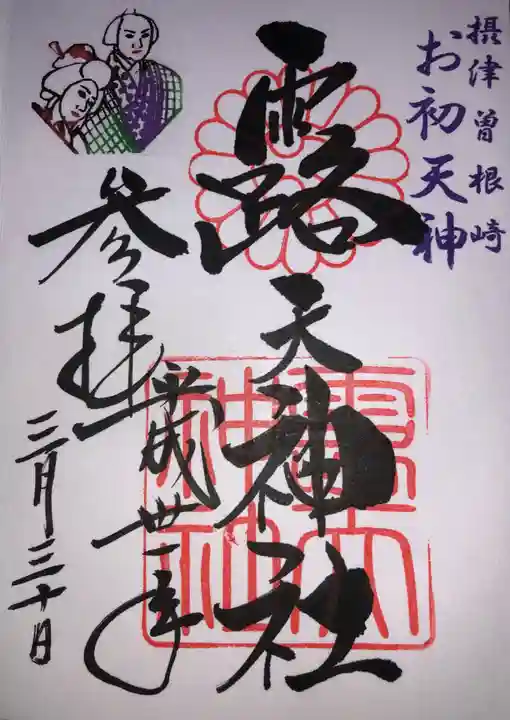 摂津曽根崎
お初天神
露天神社
平成卅一年
参拝
三月三十日